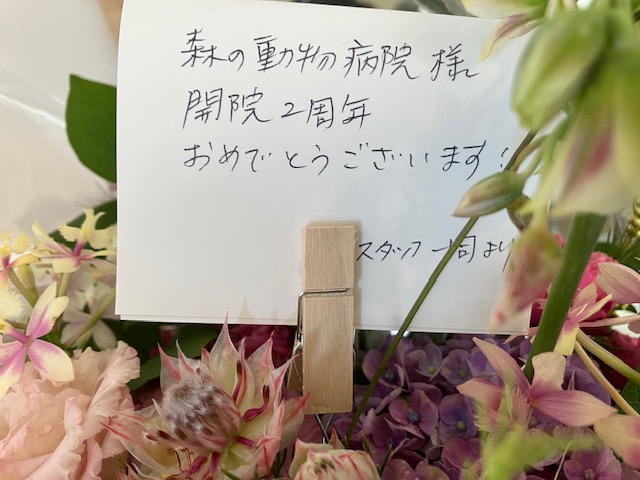 森の動物病院 様
開院2周年
おめでとうございます!
スタッフ一同より